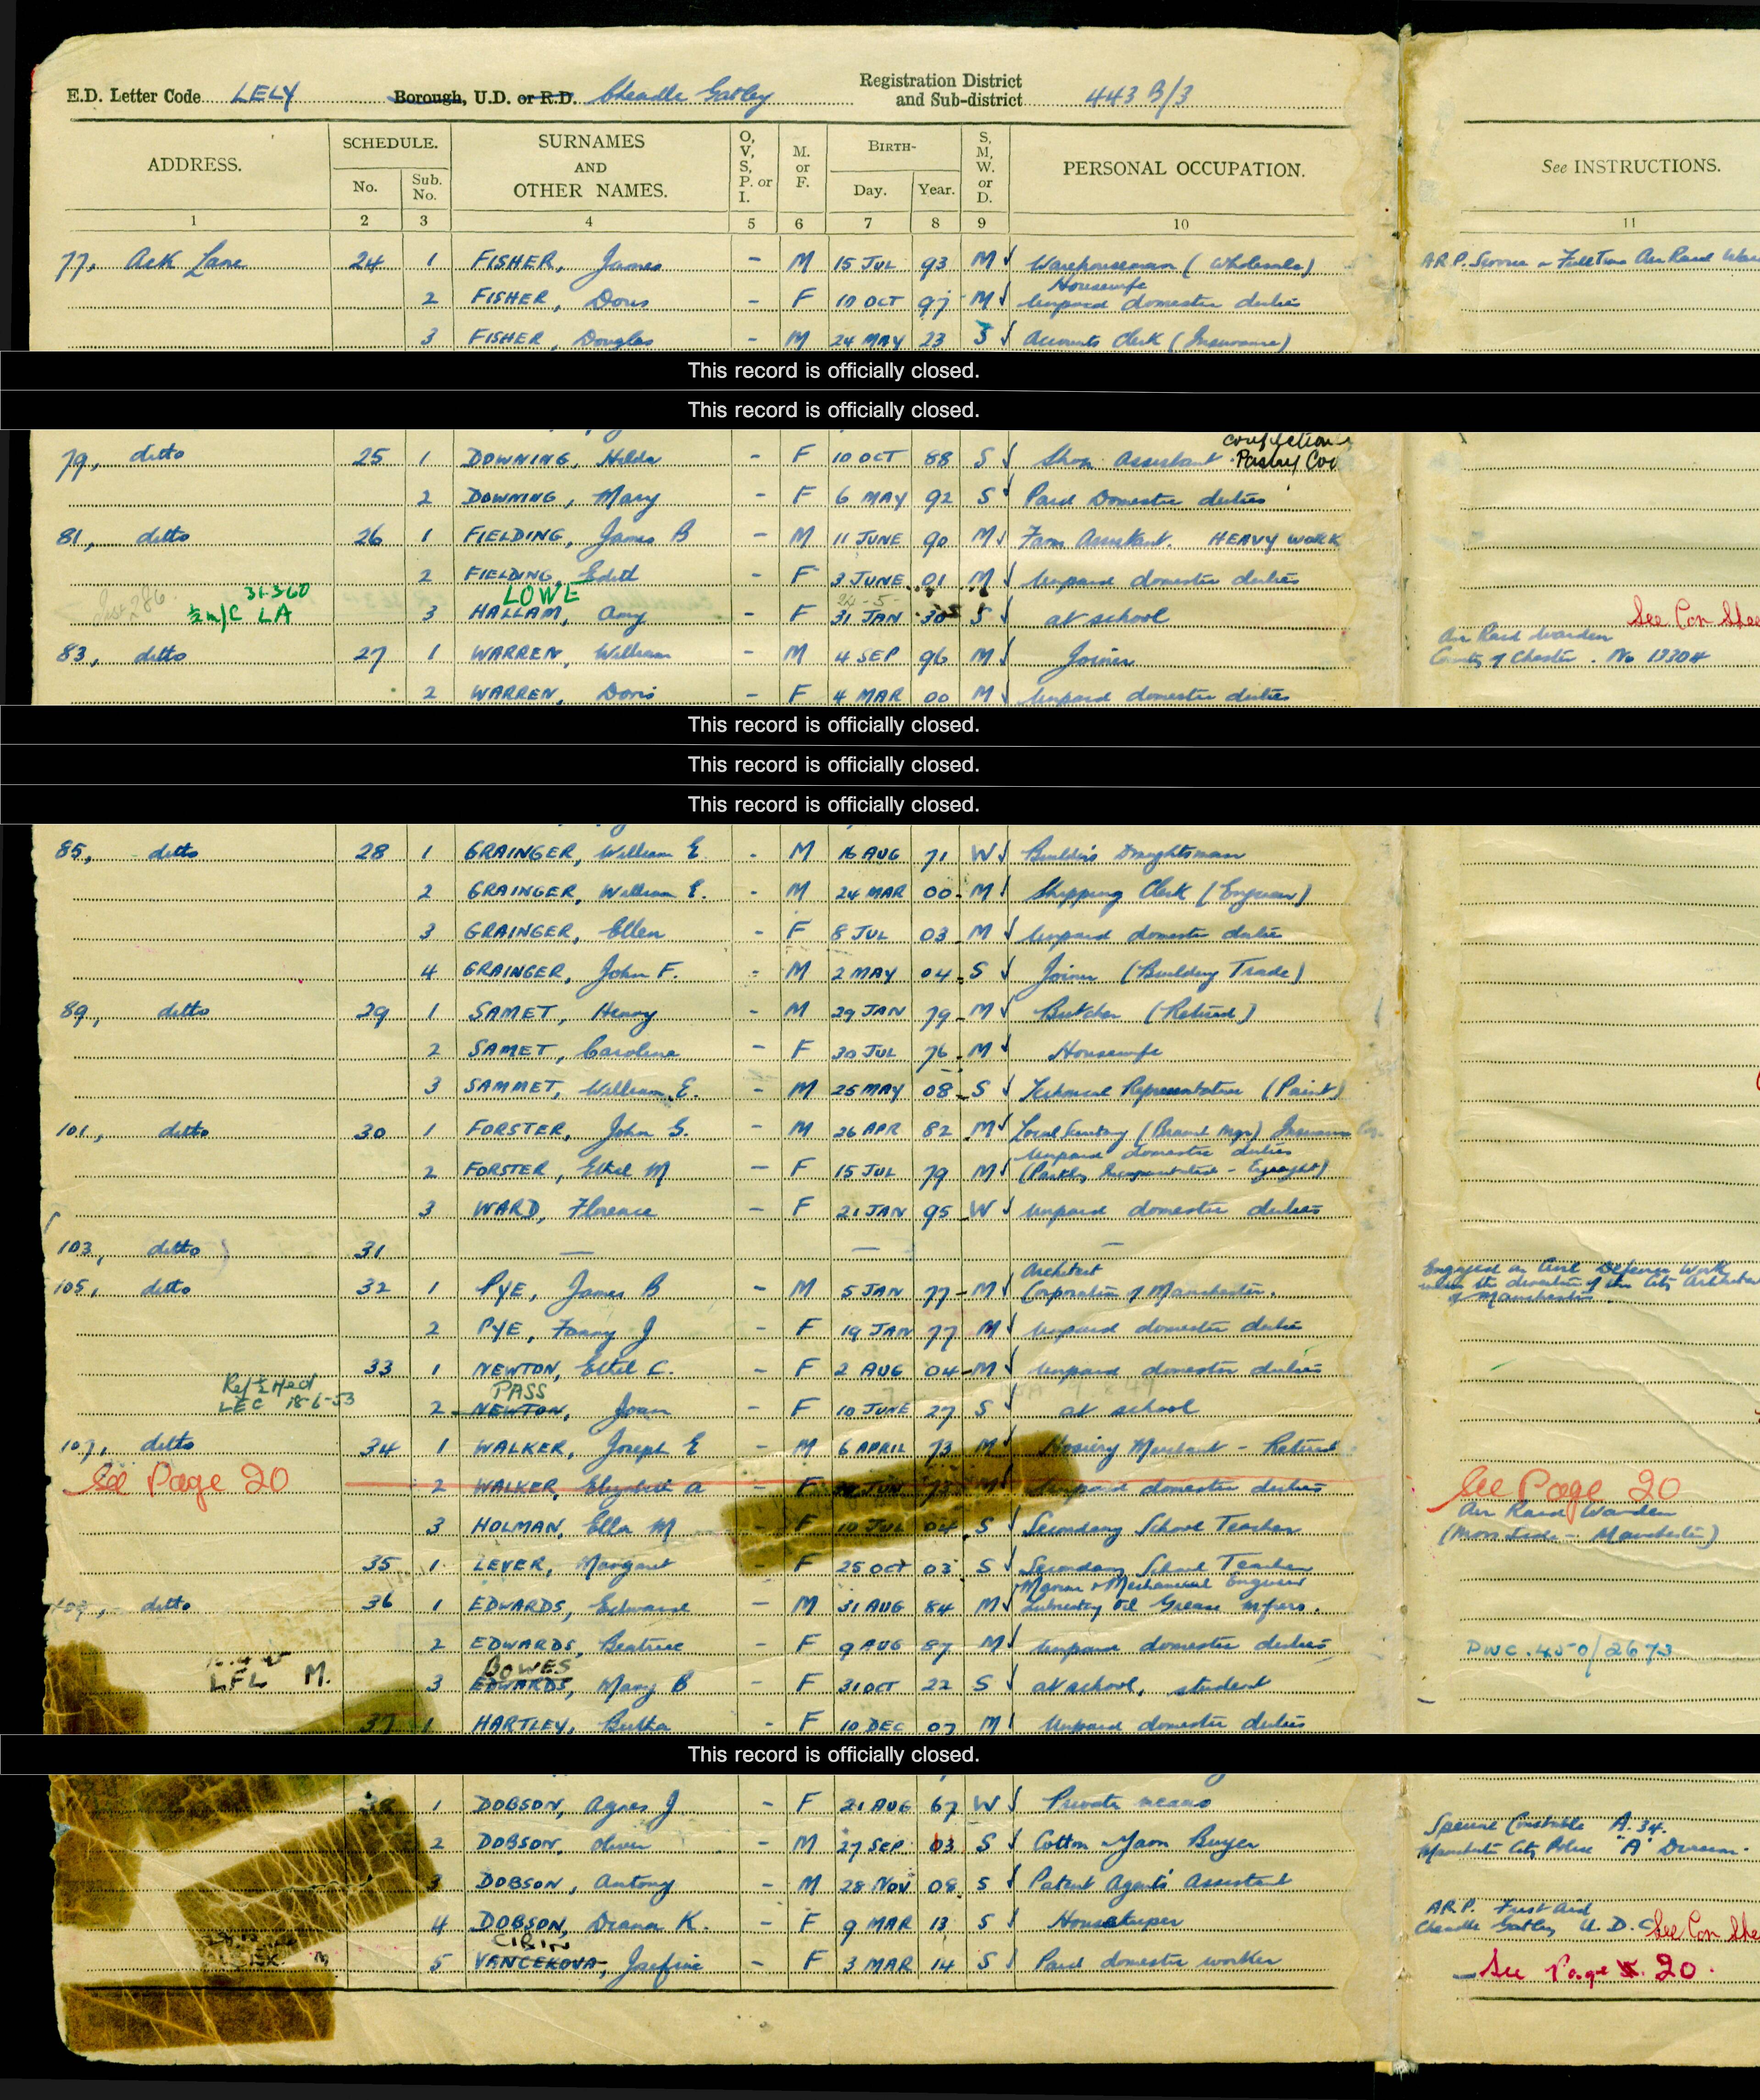 E.D. Letter Code LELY Borough, U.D. or R.D. Cheadle Gatley Registration District and Sub-district 443 B/3
ADDRESS. SCHEDULE. No. Sub. No. SURNAMES AND OTHER NAMES. O, V, S, P. or I. M. or F. BIRTH- Day. Year. S, M, W. or D. PERSONAL OCCUPATION. See INSTRUCTIONS.
1 2 3 4 5 6 7 8 9 10 11
77, Ack Lane 24 1 FISHER, James - M 15 JUL 93 M Warehouseman (Wholesale) A.R.P. Service Full Time Air Raid
Housewife
2 FISHER, Doris - F 10 OCT 97 M Unpaid domestic duties
3 FISHER, Douglas - M 24 MAY 23 S Accounts Clerk (Insurance)
This record is officially closed.
This record is officially closed.
79, ditto 25 1 DOWNING, Hilda - F 10 OCT 88 S Shop Assistant
2 DOWNING, Mary - F 6 MAY 92 S Paid Domestic duties
81, ditto 26 1 FIELDING, James B - M 11 JUNE 90 M Farm Assistant. HEAVY WORK
2 FIELDING, Edith - F 3 JUNE 01 M Unpaid domestic duties
31-3-60 LOWE
LA 3 HALLAM, Amy - F 31 JAN 30 S at school See Con Shee
Air Raid Warden
83, ditto 27 1 WARREN, William - M 4 SEP 96 M Joiner County of Chester. No 13304
2 WARREN, Doris - F 4 MAR 00 M Unpaid domestic duties
This record is officially closed.
This record is officially closed.
This record is officially closed.
85, ditto 28 1 GRAINGER, William E. - M 16 AUG 71 W Builder's Draughtsman
2 GRAINGER, William E. - M 24 MAR 00 M Shipping Clerk (Engineer)
3 GRAINGER, Ellen - F 8 JUL 03 M Unpaid domestic duties
4 GRAINGER, John F. - M 2 MAY 04 S Joiner (Building Trade)
89, ditto 29 1 SAMET, Henry - M 29 JAN 79 M Butcher (Retired)
2 SAMET, Caroline - F 30 JUL 76 M Housewife
3 SAMMET, William E. - M 25 MAY 08 S Technical Representative (Paint)
101, ditto 30 1 FORSTER, John S. - M 26 APR 82 M Local Secretary (Branch Mgr) Insurance
Unpaid domestic duties
2 FORSTER, Ethel M - F 15 JUL 79 M (Partly Incapacitated - Eyesight)
3 WARD, Florence F 21 JAN 95 W Unpaid domestic duties
103, ditto 31 — — —
Architect Engaged on Civil Defence Work
105, ditto 32 1 PYE, James B - M 5 JAN 77 M Corporation of Manchester. under the direction of the City Architect
of Manchester.
2 PYE, Fanny J - F 19 JAN 77 M Unpaid domestic duties
33 1 NEWTON, Ethel C. - F 2 AUG 04 M Unpaid domestic duties
PASS
LEC 18-6-53 2 NEWTON, Joan - F 10 JUNE 27 S at school
107, ditto 34 1 WALKER, Joseph E - M 6 APRIL 73 M Hosiery Merchant - Retired
See Page 20 2 WALKER, Elizabeth A - F JUN M Unpaid domestic duties See Page 20
Air Raid Warden
3 HOLMAN, Ella M - F 10 JUL 04 S Secondary School Teacher (Moss Side - Manchester)
35 1 LEVER, Margaret - F 25 OCT 03 S Secondary School Teacher
Mechanical Engineer
109, ditto 36 1 EDWARDS, Edward - M 31 AUG 84 M Lubricating Oil Grease mfrers.
2 EDWARDS, Beatrice - F 9 AUG 87 M Unpaid domestic duties PWC.450/2673
BOWES
LFL M. 3 EDWARDS, Mary B - F 31 OCT 22 S at school, student
37 1 HARTLEY, Bertha - F 10 DEC 07 M Unpaid domestic duties
This record is officially closed.
1 DOBSON, Agnes J - F 21 AUG 67 W Private means
Special Constable A.34.
2 DOBSON, Oliver - M 27 SEP 03 S Cotton Yarn Buyer Manchester City Police "A" Division.
3 DOBSON, Antony - M 28 NOV 08 S Patent Agent's Assistant
A.R.P. First Aid
4 DOBSON, Diana K. - F 9 MAR 13 S Housekeeper Cheadle Gatley U.D.C. See Con Shee
CIBIN
5 VANCEKOVA, Josefine - F 3 MAR 14 S Paid domestic worker See Page 20.